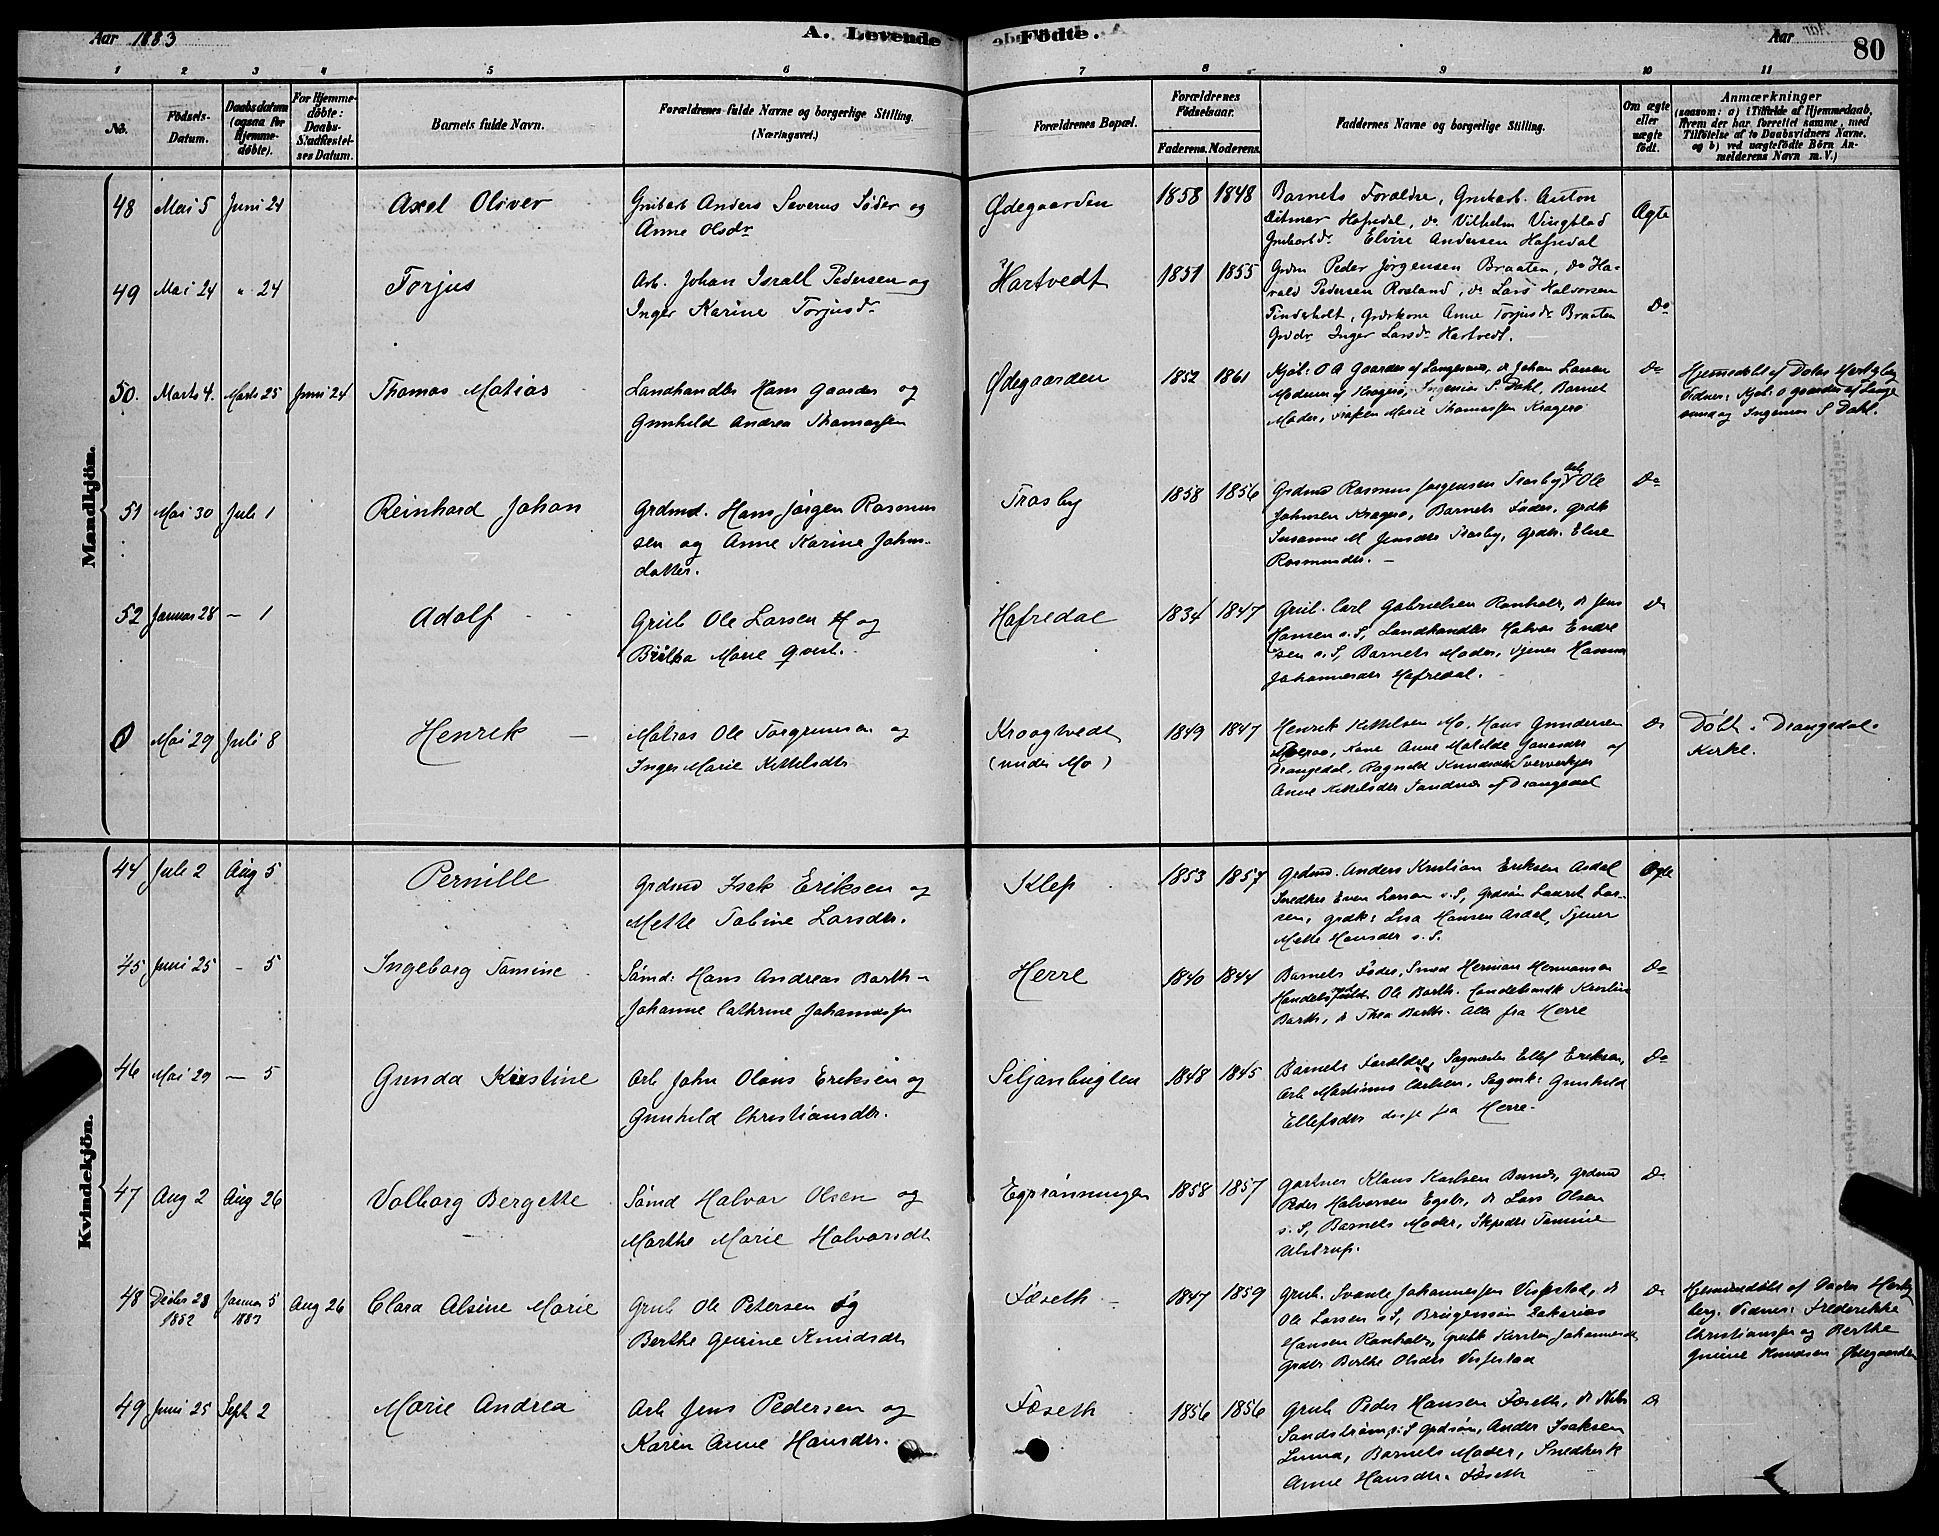 Aar 1883
A. Levende Fødte.
Aar
80
1 2 3 4 5 6 7 8 9 10 11
No.
Fødsels-Datum.
Daabsdatum (ogsaa for Hjemme-døbte).
For Hjemme-døbte: Daabs-Stadfæstel-ses Datum.
Barnets fulde Navn.
Forældrenes fulde Navne og borgerlige Stilling. (Næringsvei.)
Forældrenes Bopæl.
Forældrenes Fødselsaar.
Faderens. Moderens.
Faddernes Navne og borgerlige Stilling.
Om ægte eller uægte født.
Anmærkninger
(saasom: a) i Tilfælde af Hjemmedaab,
Hvem der har forrettet samme, med
Tilføielse af to Daabsvidners Navne,
og b) ved uægtefødte Børn An-
melderens Navn m. V.)
Mandkjøn.
48 Mai 5 Juni 24 Axel Oliver
Grubarb Anders Severus Söder og
Anne Olsdr
Ødegaarden 1858 1848
Barnets Forældre, Grubarb. Anton
Ditmar Hafredal, do Vilhelm Vingblad
Grubarbdr Elvire Andersen Hafredal
Ægte
49 Mai 24 " 24 Torjus
Arb. Johan Israll Pedersen og
Inger Karine Torjusdr
Hartvedt 1851 1855
Grdm Peder Jørgensen Braaten, do Ha-
rald Pedersen Rosland, do Lars Halvorsen
Finderholt, Grdkone Anne Torjusdr Braaten
Grddr Inger Larsdr Hartvedt.
Do
50. Marts 4. Marts 25 Juni 24 Thomas Matias
Landhandler Hans Gaarder og
Gunhild Andrea Thomassen
Ødegaarden 1852 1861
Kjøb. O A Gaarder af Langesund, do Johan Larsen
af Kragerø, Ingeniør S. Dahl, Barnets
Moder, Frøken Marie Thomassen Kragerø
Do
Hjemdøbt af
Vidner: Kjøb. O Gaarder af Lange
sund og Ingeniør S Dahl.
51 Mai 30 Juli 1 Reinhard Johan
Grdmd. Hans Jørgen Rasmus
sen og Anne Karine Johns-
datter.
Trosby 1858 1856
Grdmd Rasmus Jørgensen Trosby, Arb Ole
Johnsen Kragerø, Barnets Fader, Grdk
Susanne M Jensdtr Trosby, Grdtr. Elise
Rasmusdtr. —
Do
52 Januar 28 — 1 Adolf
Grub Ole Larsen H og
Britha Marie Qvist.
Hafredal 1834 1847
Grub. Carl Gabrielsen Ronholt, do Jens
Hansen s. S, Landhandler Halvor Endre
sen s. S, Barnets Moder, Tjener Hanna
Johannesdtr Hafredal.
Do
0 Mai 29 Juli 8 Henrik —
Matros Ole Torgrimsen og
Inger Marie Kittelsdtr
Kroogtvedt
(under Mo)
1849 1847
Henrik Kittelsen Mo, Hans Gundersen
Kone Anne Matilde af
Drangedal, Ragnild Knudsen
Anne Kittelsdtr Sandnes af Drangedal
Do
Døbt i Drangedal
Kirke.
Kvindekjøn.
44 Juli 2 Aug 5 Pernille
Grdmd Isak Eriksen og
Mette Tobine Larsdtr.
Klep 1853 1857
Grdmd. Anders Kristian Eriksen Asdal
Snedker Even Larsen s. S, Grdsøn Laurits Lar-
sen, grdk: Lisa Hansen Asdal, Tjener
Mette Hansdtr s. S.
Ægte
45 Juni 25 - 5 Ingeborg Tomine
Sømd: Hans Andreas Barth -
Johanne Cathrine Johannessen
Herre 1840 1844
Barnets Fader, Smed Herman Hermansen
Ole Barth. Kristine
Barth, do Thea Barth. Alle fra Herre
Do
46 Mai 29 — 5 Gunda Kristine
Arb John Olaus Eriksen og
Gunhild Christiansdtr.
Siljanbugten 1848 1845
Barnets Forældre, Sagmester Ellef Eriksen,
Arb Martinus Carlsen, Sagmk: Gunhild
Ellefsdtr fra Herre.
Do
47 Aug 2 Aug 26 Valborg Bergette
Sømd Halvor Olsen og
Marthe Marie Halvorsdtr
Egrønningen 1858 1857
Gartner Klaus Karlsen Grdmd
Peder Halvorsen do Lars Olsen
s. S, Barnets Moder, Tomine
Ulstrup.
Do
48 Decbr 28 1882 Januar 5 1883 Aug 26 Clara Alsine Marie
Grub Ole Petersen og
Berthe Gurine Knudsdtr
Fæseth 1847 1859
Grub. Svante Johannessen Vissestad, do
Ole Larsen s S, Zakarias
Hansen Ronholt, Grubk Kirsten Johannesdtr
Grdtr Berthe Olsdtr Vissestad
Do
Hjemmedøbt af
berg. Vidner: Frederikke
Christiansen og Berthe
Gurine Knudsen Ødegaarden
49 Juni 25 Sept 2 Marie Andrea
Arb Jens Pedersen og
Karen Anne Hansdtr.
Fæseth 1856 1856
Grub Peder Hansen Fæseth, do
Sandstrøm s. S Grdsøn, Anders Isaksen
Lunna, Barnets Moder, Snedkerk
Anne Hansdtr. Fæseth
Do